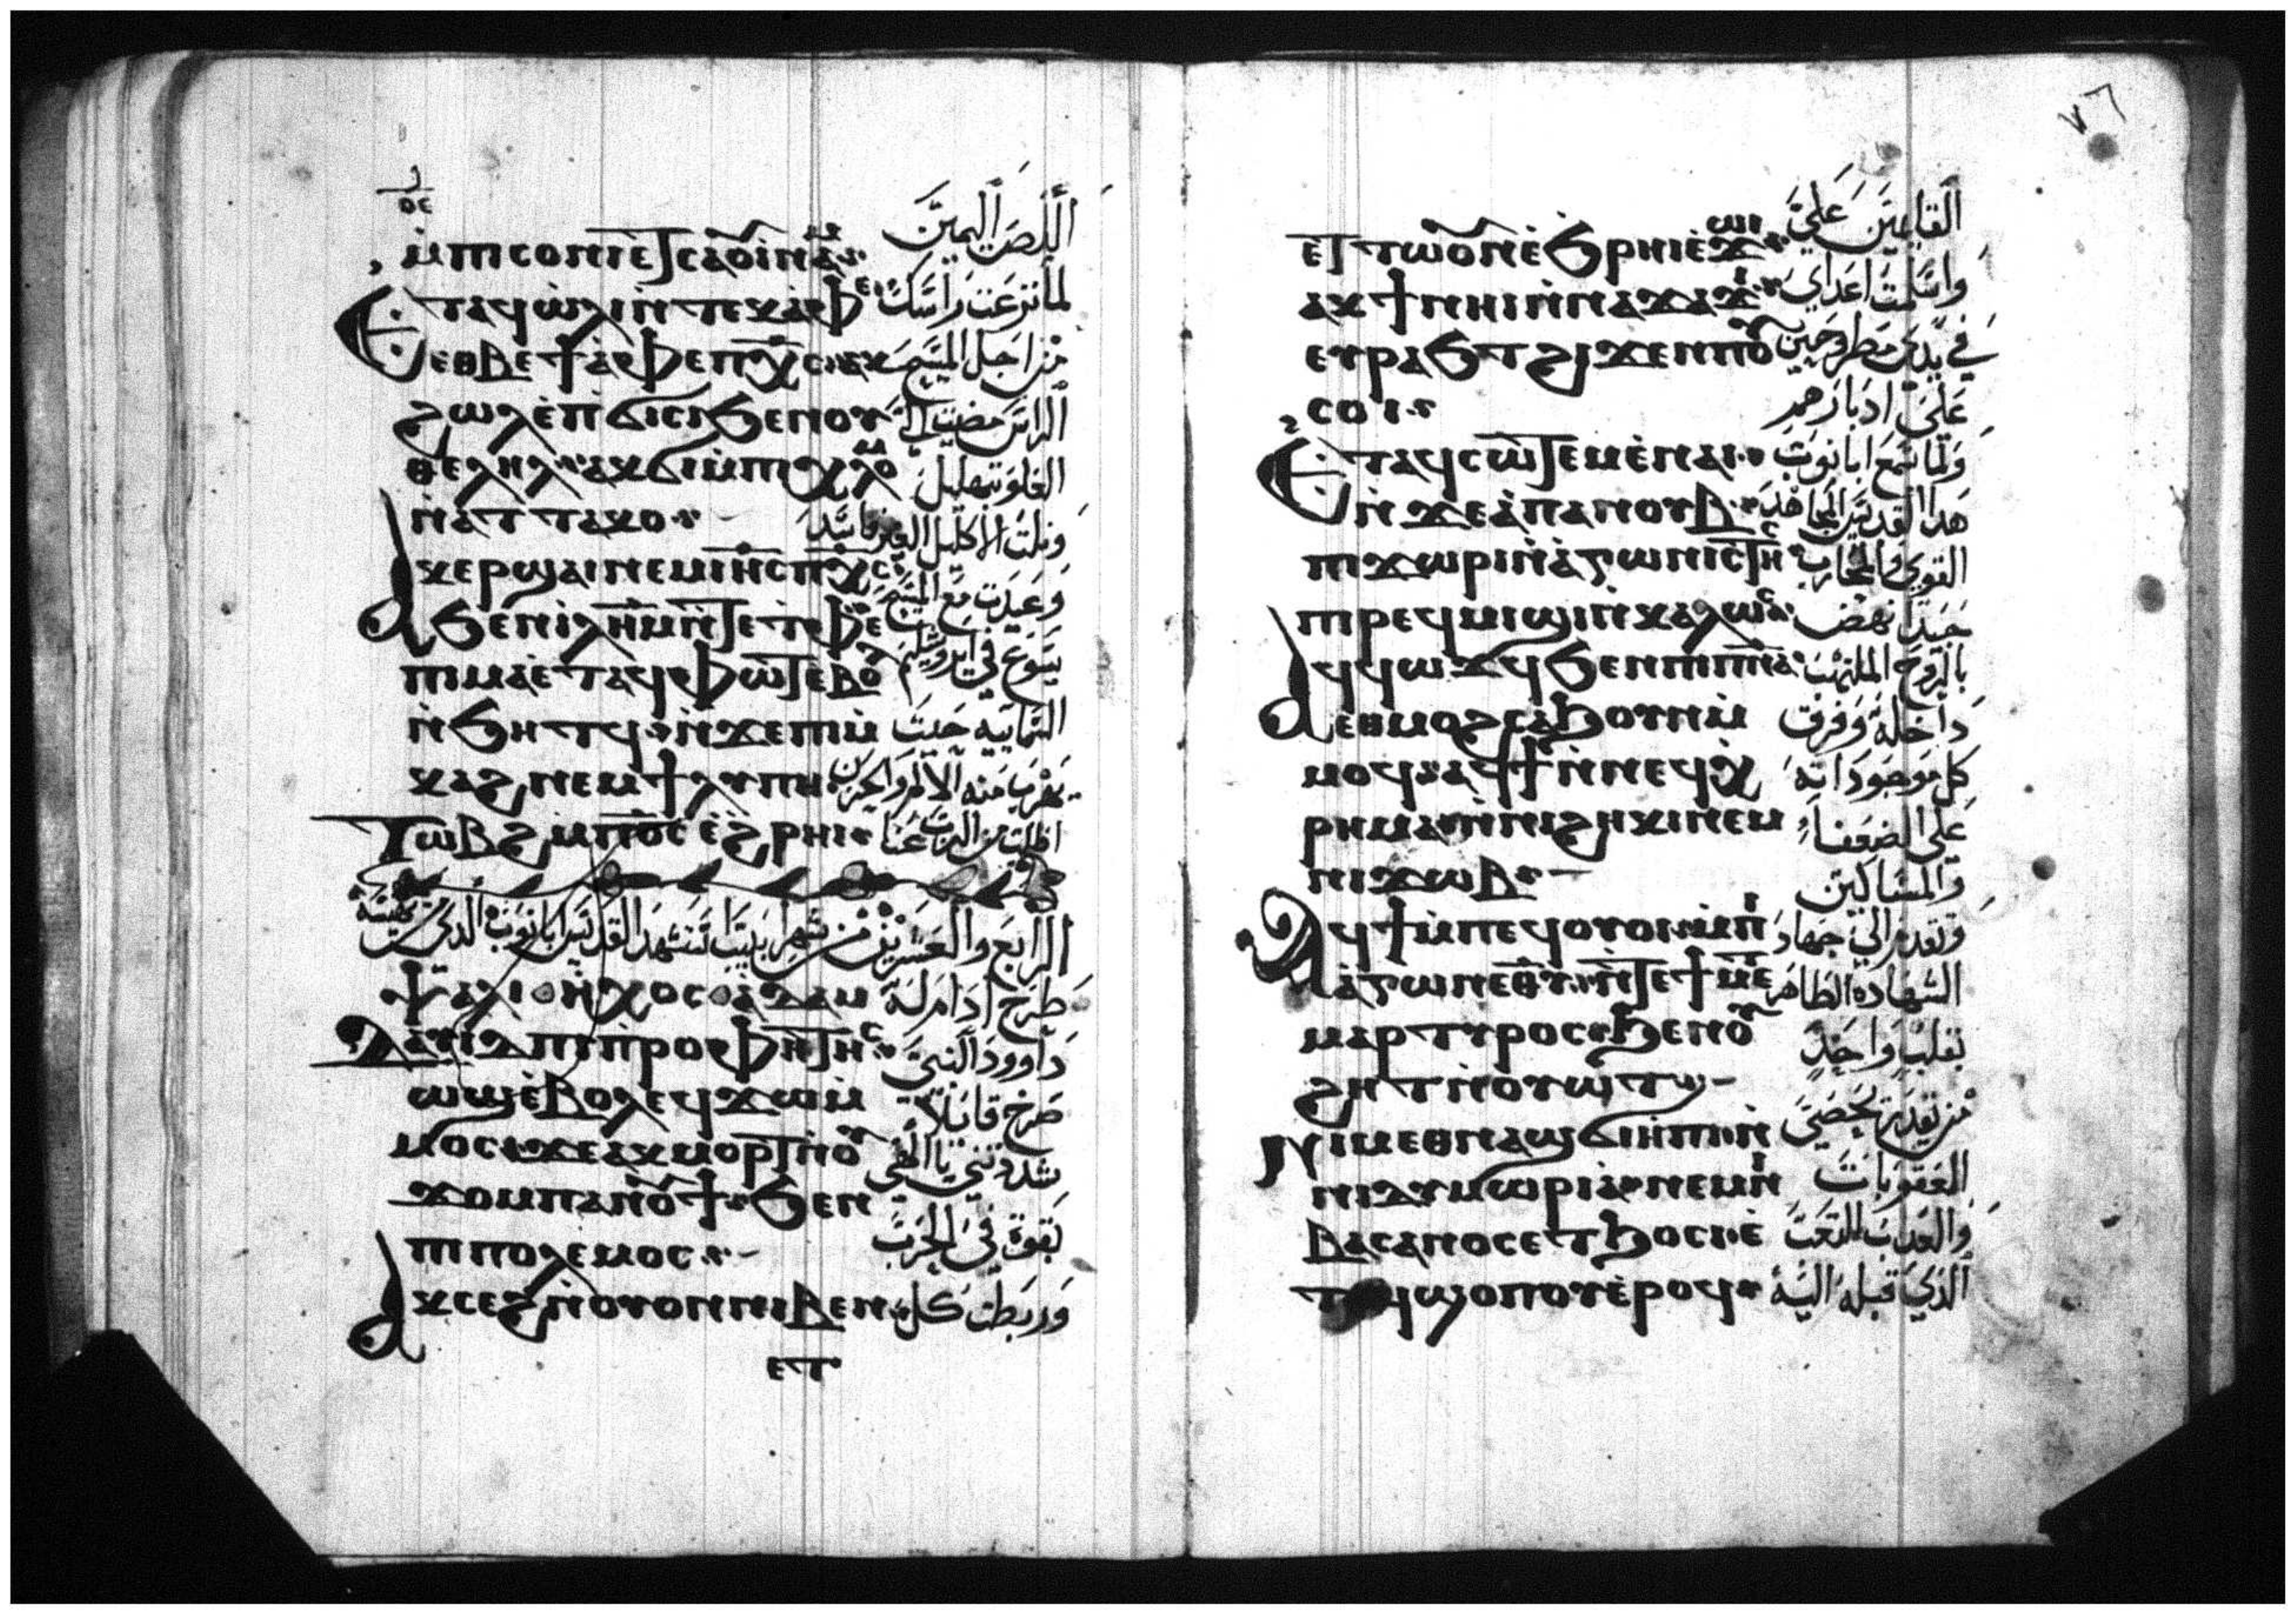 ⲙ̀ⲡⲓⲥⲟⲛⲓ ⲉⲧⲥⲁⲟⲩⲓⲛⲁⲙ اللص اليمين
Ⲉⲧⲁϥⲱ̀ⲗⲓ ⲛ̀ⲧⲉⲕⲁ̀ⲫⲉ لما نزعت راسك
ⲉⲑⲃⲉ ϯⲁ̀ⲫⲉ ⲡⲭ̅ⲥ̅ ⲁⲕ من اجل المسيح
ϩⲱⲗ ⲉ̀ⲡϭⲓⲥⲓ ϧⲉⲛⲟⲩ الراس مضيت الي
ⲑⲉⲗⲏⲗ ⲁⲕϭⲓ ⲙ̀ⲡⲓⲭⲗⲟⲙ العلو بتهليل
ⲛ̀ⲁⲧⲧⲁⲕⲟ ونلت الاكليل الغير فاسد
Ⲁⲕⲉⲣϣⲁⲓ ⲛⲉⲙ ⲓⲏ̅ⲥ̅ ⲡⲭ̅ⲥ̅ وعيدت مع المسيح
ϧⲉⲛ ⲓⲗ̅ⲏ̅ⲙ̅ ⲛ̀ⲧⲉ ⲧⲫⲉ يسوع في ايروشليم
ⲡⲓⲙⲁ ⲉ̀ⲧⲁϥⲫⲱⲧ ⲉ̀ⲃⲟⲗ
ⲛ̀ϧⲏⲧϥ ⲛ̀ϫⲉ ⲡⲓⲙ̀ السمايية حيث
ⲕⲁϩ ⲛⲉⲙ ϯⲗⲩⲡⲏ يهرب منه الالم والحزن
Ⲧⲱⲃϩ ⲙ̀ⲡⲟ̅ⲥ̅ ⲉ̀ϩⲣⲏⲓ اطلب من الرب عنا
الرابع والعشرين من شهر ابيب استشهد القديس ابانوب الذي من نهيسة
Ⲯⲁⲗⲓ ⲏⲭⲟⲥ ⲁⲇⲁⲙ طرح ادام له
Ⲇⲁⲩⲓⲇ ⲡⲓⲡ̀ⲣⲟⲫⲏⲧⲏⲥ داوود النبي
ⲱϣ ⲉ̀ⲃⲟⲗ ⲉϥϫⲱ ⲙ̀ صرخ قايلا
ⲙⲟⲥ ϫⲉ ⲁⲕⲙⲟⲣⲧ ⲛ̀ⲟⲩ شددتني يا الهي
ϫⲟⲙ ⲡⲁⲛⲟⲩϯ ϧⲉⲛ بقوة في الحرب
ⲡⲓⲡⲟⲗⲉⲙⲟⲥ
Ⲁⲕⲥⲉϩ ⲛ̀ⲟⲩⲟⲛ ⲛⲓⲃⲉⲛ وربطت كل
ⲉⲧ
٧٦
ⲉⲧⲧⲱⲟⲩⲛ ⲉ̀ϧⲣⲏⲓ ⲉ̀ϫⲱⲓ القايمين علي
ⲁⲕϯ ⲛⲏⲓ ⲛ̀ⲛⲁϫⲁϫⲓ واسلمت اعداي
ⲉⲩⲣⲁϧⲧ ϩⲓϫⲉⲛ ⲡⲟⲩ في يدي مطروحين
ⲥⲟⲓ علي ادبارهم
Ⲉⲧⲁϥⲥⲱⲧⲉⲙ ⲉ̀ⲛⲁⲓ ولما سمع ابانوب
ⲛ̀ϫⲉ ⲁ̀ⲡⲁ ⲛⲟⲩⲃ هذا القديس المجاهد
ⲡⲓϫⲱⲣⲓ ⲛ̀ⲁ̀ⲅⲱⲛⲓⲥⲧⲏⲥ القوي والمحارب
ⲡⲓⲣⲉϥⲙⲓϣⲓ ⲛ̀ⲕⲁⲗⲱⲥ جيدا نهض
Ⲁϥϥⲱϫϥ ϧⲉⲛ ⲡⲓⲡ̅ⲛ̅ⲁ̅ بالروح الملتهب
ⲉⲑⲙⲟϩ ⲥⲁϧⲟⲩⲛ ⲙ̀ داخله وفرق
ⲙⲟϥ ⲁϥϯ ⲛ̀ⲛⲉϥⲭ̀ كل موجوداته
ⲣⲏⲙⲁ ⲛ̀ⲛⲓϩⲏⲕⲓ ⲛⲉⲙ علي الضعفاء
ⲛⲓϫⲱⲃ والمساكين
Ⲁϥϯ ⲙ̀ⲡⲉϥⲟⲩⲟⲓ ⲙ̀ⲡⲓ وتقدم الي جهاد
ⲁ̀ⲅⲱⲛ ⲉⲑ̅ⲩ̅ ⲛ̀ⲧⲉ ϯⲙⲉⲧ الشهادة الطاهر
ⲙⲁⲣⲧⲩⲣⲟⲥ ϧⲉⲛ ⲟⲩ بقلب واحد
ϩⲏⲧ ⲛ̀ⲟⲩⲱⲧ
Ⲛⲓⲙ ⲉⲑⲛⲁϣϭⲓⲏ̀ⲡⲓ ⲛ̀ من يقدر يحصي
ⲛⲓⲇⲩⲙⲱⲣⲓⲁ ⲛⲉⲙ ⲛⲓ العقوبات
ⲃⲁⲥⲁⲛⲟⲥ ⲉⲧϧⲟⲥⲓ ⲉ̀ والعذاب التعب
ϥϣⲟⲡⲟⲩ ⲉ̀ⲣⲟϥ الذي قبله اليه